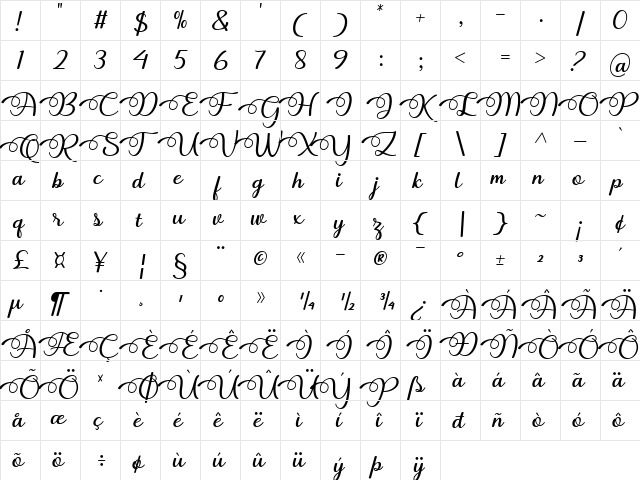 ! " # $ % & ' ( ) * + , − . / 0
1 2 3 4 5 6 7 8 9 : ; < = > ? @
A B C D E F G H I J K L M N O P
Q R S T U V W X Y Z [ \ ] ^ _ `
a b c d e f g h i j k l m n o p
q r s t u v w x y z { | } ~ ¡ ¢
£ ¤ ¥ ¦ § ¨ © « ¬ ® ¯ ° ± ² ³ ´
µ ¶ · ¸ ¹ º » ¼ ½ ¾ ¿ À Á Â Ã Ä
Å Æ Ç È É Ê Ë Ì Í Î Ï Ð Ñ Ò Ó Ô
Õ Ö × Ø Ù Ú Û Ü Ý Þ ß à á â ã ä
å æ ç è é ê ë ì í î ï đ ñ ò ó ô
õ ö ÷ ø ù ú û ü ý þ ÿ